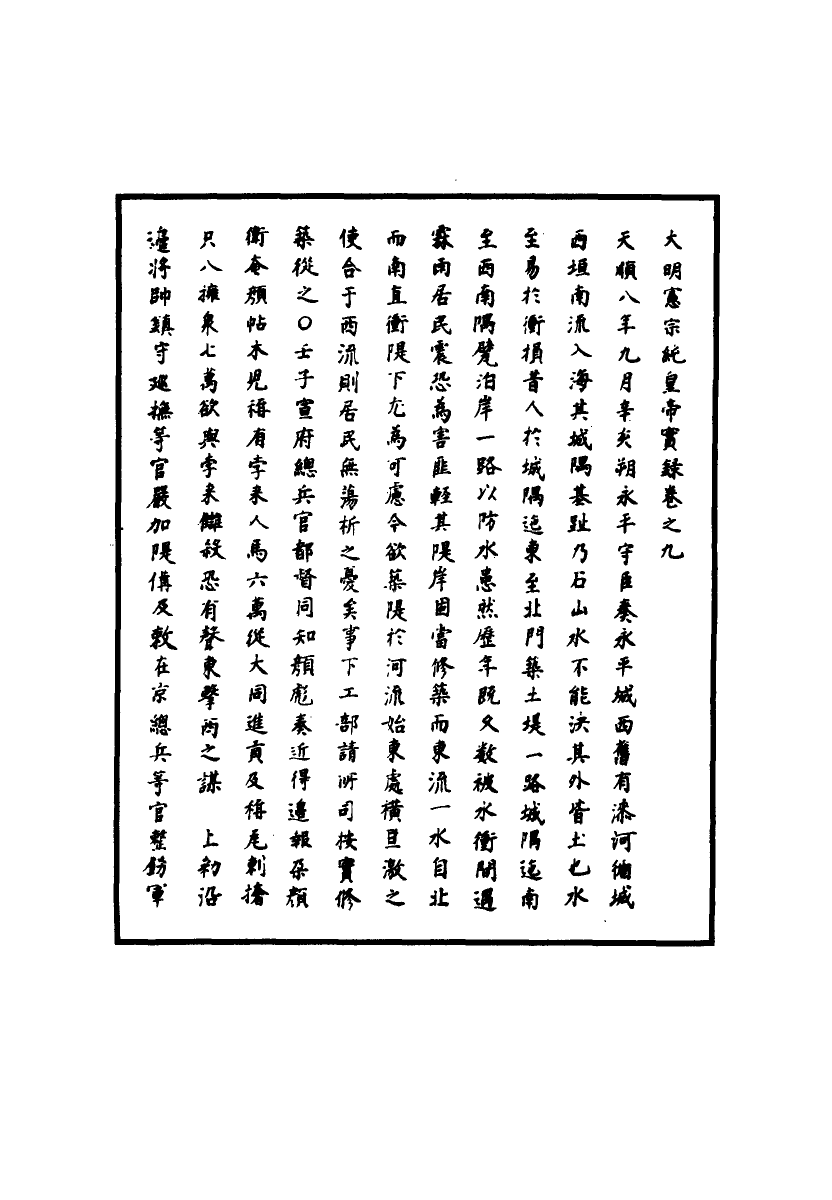 大明憲宗純皇帝實錄卷之九
天順八年九月辛亥朔永平守臣奏永平城西舊有漆河徇城
西垣南流入海其城隅基趾乃石山水不能決其外皆土也水
至易於衝損昔人於城隅迤東至北門築土堤一路城隅迤南
至西南隅甃泊岸一路以防水患然歷年既久數被水衝間遇
霖雨居民震恐為害匪輕其隄岸固當修築而東流一水自北
而南直衝隄下尤為可慮今欲築隄於河流始東處橫亘激之
使合于西流則居民無蕩析之憂矣事下工部請所司按實修
築從之○壬子宣府總兵官都督同知顏彪奏近得邊報朵顏
衛奄顏帖木兒稱有孛來人馬六萬從大同進貢及稱毛剌搐
只八擁眾七萬欲與孛來讎殺恐有聲東擊西之謀　上勑沿
邊將帥鎮守廵撫等官嚴加隄備及敕在京總兵等官整飭軍